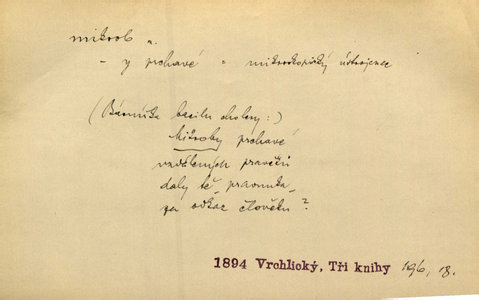 mikrob m.
- y prchavé = mikroskopický ústrojenec
(Básníka bacilu cholery:)
Mikroby prchavé
vzdálených pravěků
daly tě, pravnuka,
za odkaz člověku?
1894 Vrchlický, Tři knihy 196, 18.